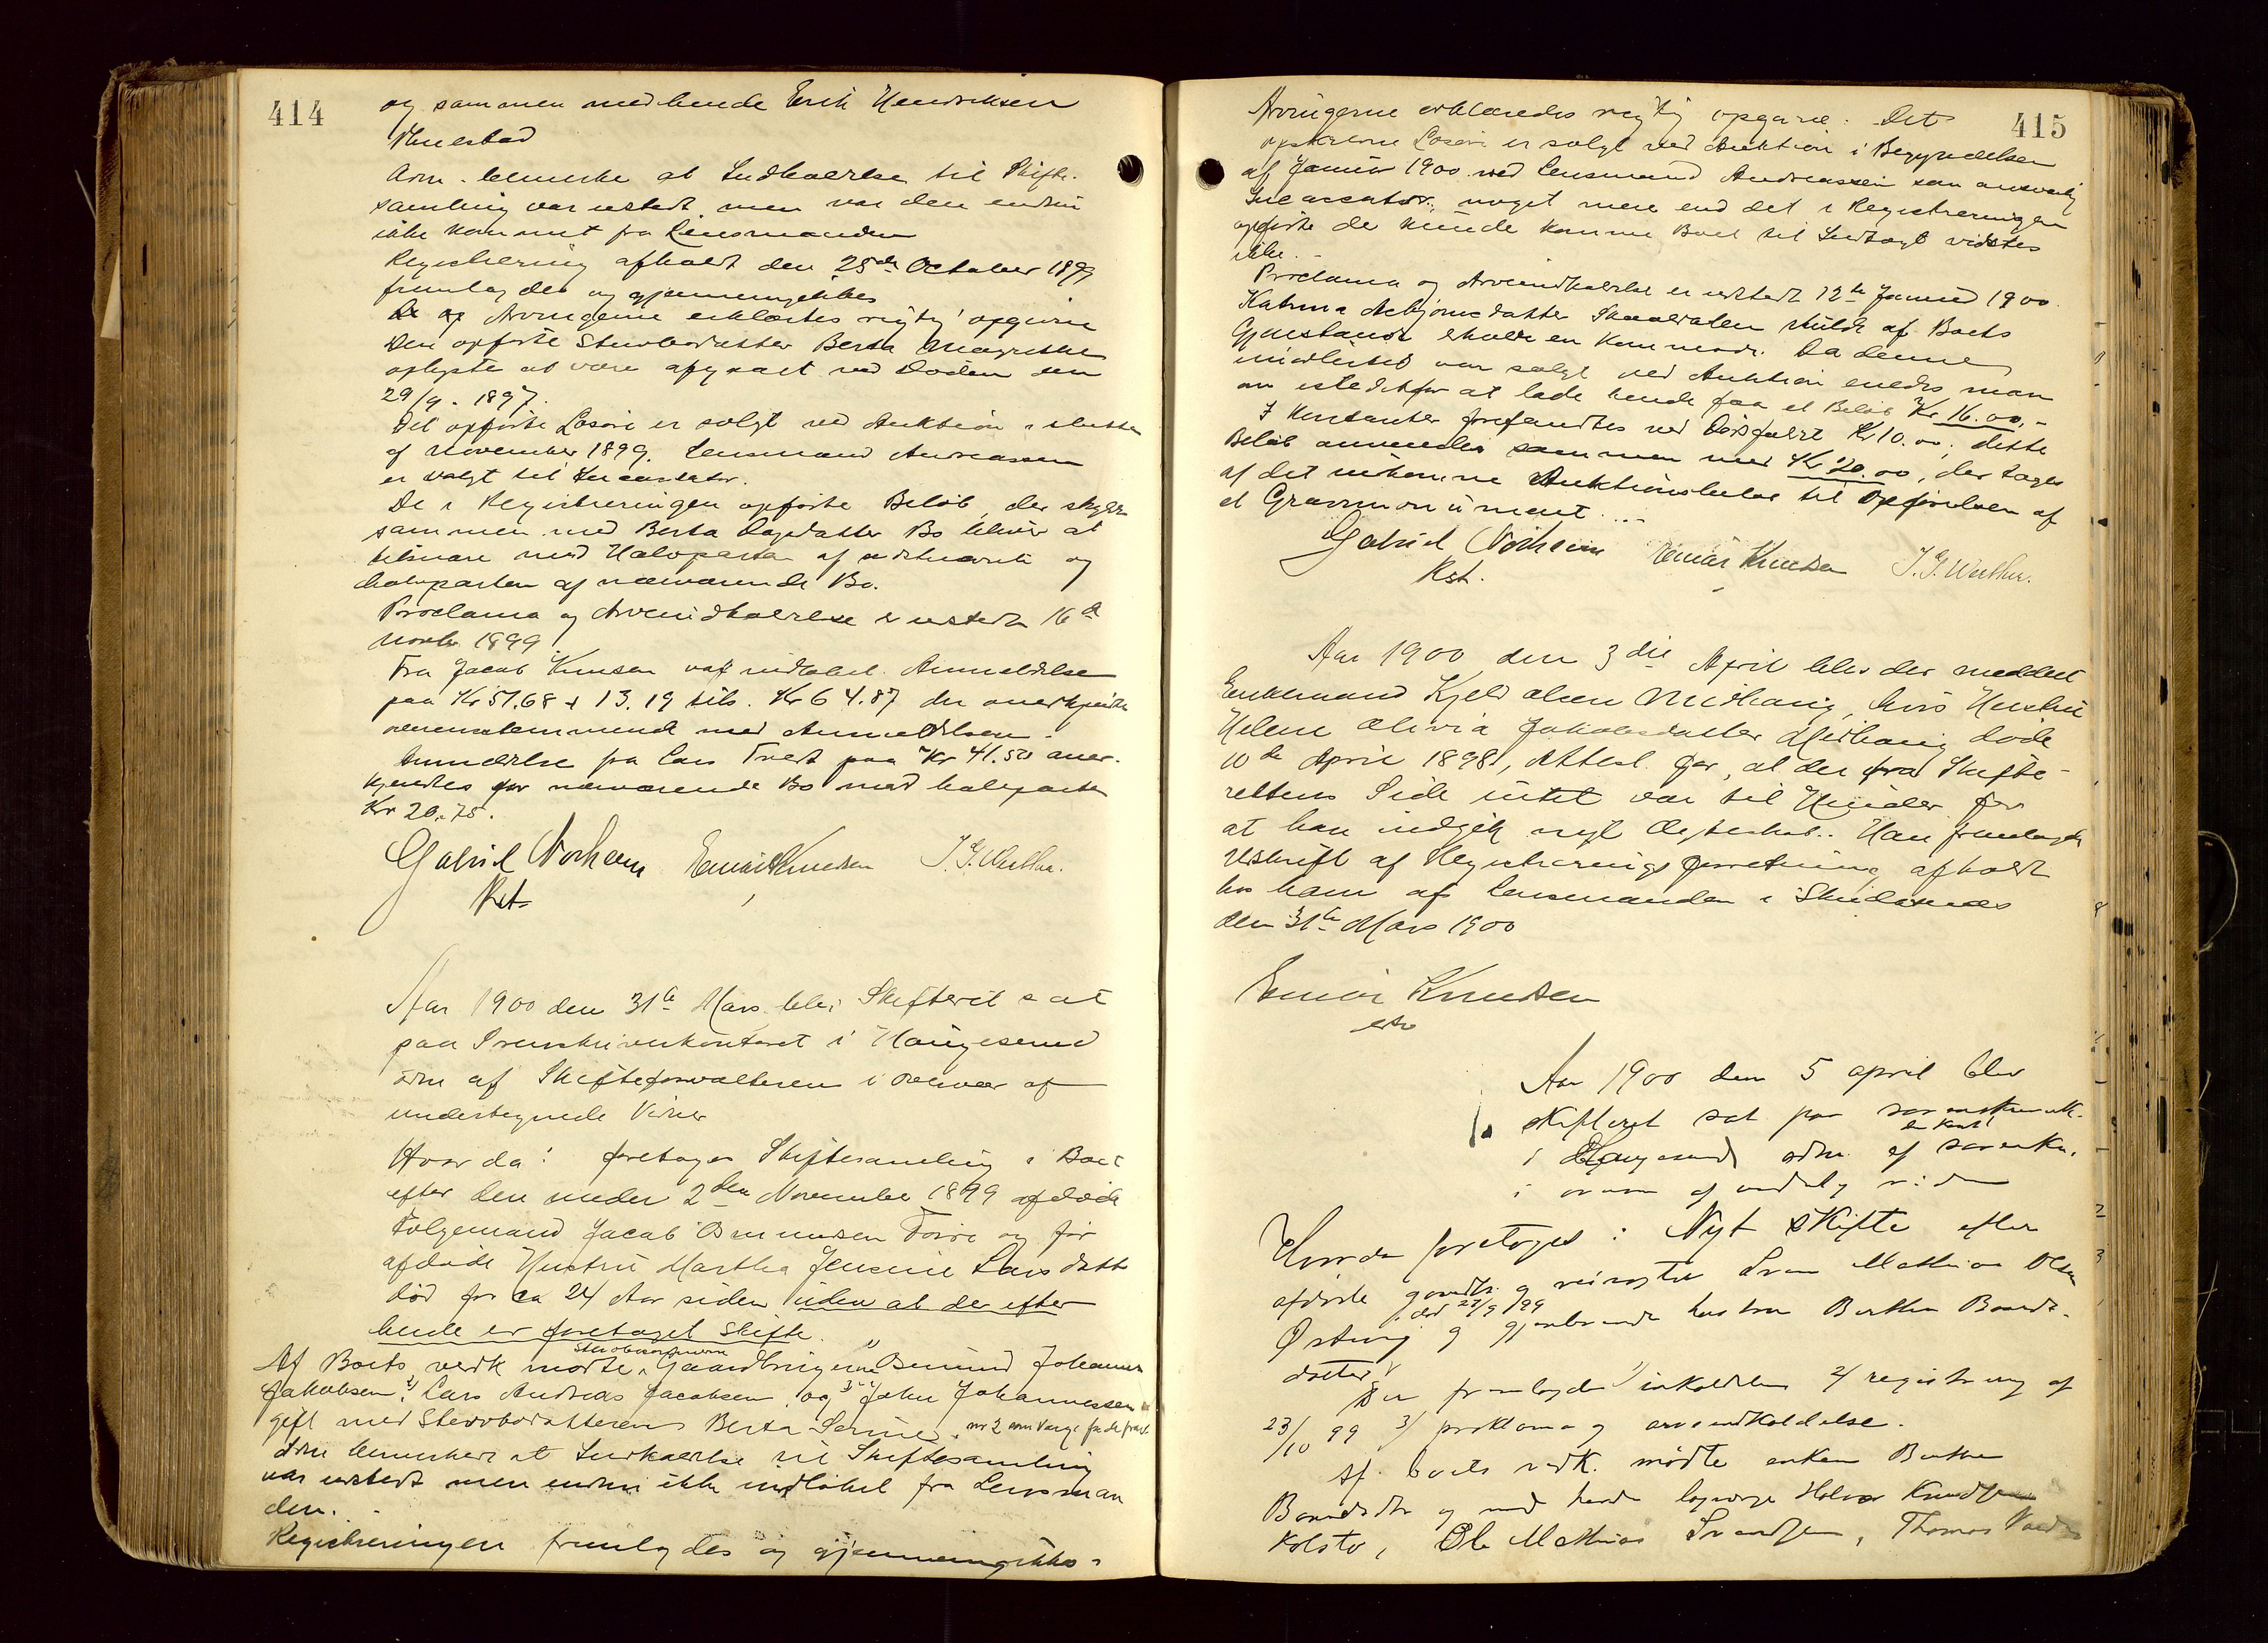 414
og sammen med hende Erik Hendriksen
Adm. bemerkede at Indkaldelse til Skifte-
samling var utstedt, men var den endnu
ikke kommet fra Lensmanden
Registrering afholdt den 25de October 1899
fremlagdes og gjennemgikkes
Arvingerne erklærtes rigtig opgivne
Den opførte Stervbodatter Berta Margrethe
oplystes at være afgaaet ved Døden den
29/9. 1897.
Det opførte Løsøre er solgt ved Auktion i slutten
af November 1899. Lensmand Andreassen
er valgt til Incassator.
De i Registreringen opførte Beløb, der skyldes
sammen med Berta Bo bliver at
tilsvare med Halvparten af sidstnævnte og
halvparten af nærværende Bo.
Proclama og Arveindkaldelse er utstedt 16de
Novbr 1899
Fra Jacob Knusen var indløbet Anmeldelse
paa Kr 51.68 + 13.19 tils. Kr 64.87 der anerkjendtes
overensstemmende med Anmeldelsen.
Anmeldelse fra Lars Tvedt paa Kr 41.50 aner-
kjendtes for nærværende Bo med halvparten
Kr 20.75.
Gabriel Norheim Einar Knudsen J. G. Werther.
Kst.
Aar 1900 den 31te Mars blev Skifteret sat
paa Sorenskriverkontoret i Haugesund
adm af Skifteforvalteren i Overvær af
undertegnede Vidner
Hvor da: foretoges Skiftesamling i Boet
efter den under 2den November 1899 afdøde
Folgemand Jacob Osmundsen og før
afdøde Hustru Martha Jensine Larsdatter
død for ca 24 Aar siden uden at der efter
hende er foretaget Skifte.
Af Boets vedk mødte Stervbosønnerne Gaardbrugerne 1) Osmund Johannes
Jakobsen 2) Lars Andreas Jacobsen og 3) John Johannessen
gift med Stervbodatteren Berta Serine. nr 2 som Verge for de fravær
Adm bemerkede at Indkaldelse til Skiftesamling
var utstedt men endnu ikke indløbet fra Lensman
den.
Registreringen fremlagdes og gjennemgikkes.
415
Arvingerne erklæredes rigtig opgivne. Det
opskrevne Løsøre er solgt ved Auktion i Begyndelsen
af Januar 1900 med Lensmand Andreassen som ansvarlig
Incassator; noget mere end det i Registreringen
opførte der kunde komme Boet til Indtægt vidstes
ikke.
Proclama og Arveindkaldelse er utstedt 12te Januar 1900.
Katrina Asbjørnsdatter skulde af Boets
Gjenstande erholde en Kommode. Da denne
imidlertid var solgt ved Auktion enedes man
om istedetfor at lade hende faa et Beløb Kr 16.00.-
I Kontanter forefandtes ved Dødsfaldet Kr 10.00; dette
Beløb anvendes sammen med Kr 20.00, der tages
af det indkomne Auktionsbeløb til Opførelsen af
et Gravmonument.
Gabriel Norheim Einar Knudsen J. G. Werther.
Kst.
Aar 1900 den 3die April blev der meddelt
Enkemand Kjeld Olsen Midhaug, hvis Hustru
Helene Olivia Jakobsdatter Midhaug døde
10de April 1898, Attest for, at der fra Skifte-
rettens Side intet var til Hinder for
at han indgik nyt Ægteskab. Han fremlagde
Udskrift af Registreringsforretning afholdt
hos ham af Lensmanden i Skudesnes
den 31te Mars 1900
Einar Knudsen
Aar 1900 den 5 april blev
skifteret sat paa
i Haugesund adm. af
i af
Hvorda foretoges: Nyt skifte efter
afdøde Sven Mathias Olsen
død 27/9 99
og gjenlevende hustru Berthe
datter
Der fremlagdes 1/ indkaldelse 2/ registrering af
23/10 99 3/ proklama og arveindkaldelse.
Af boets vedk. mødte enken Berthe
og med hende lagverge Halvor Knudsen
Kolstø, Ole Mathias Svendsen, Thomas